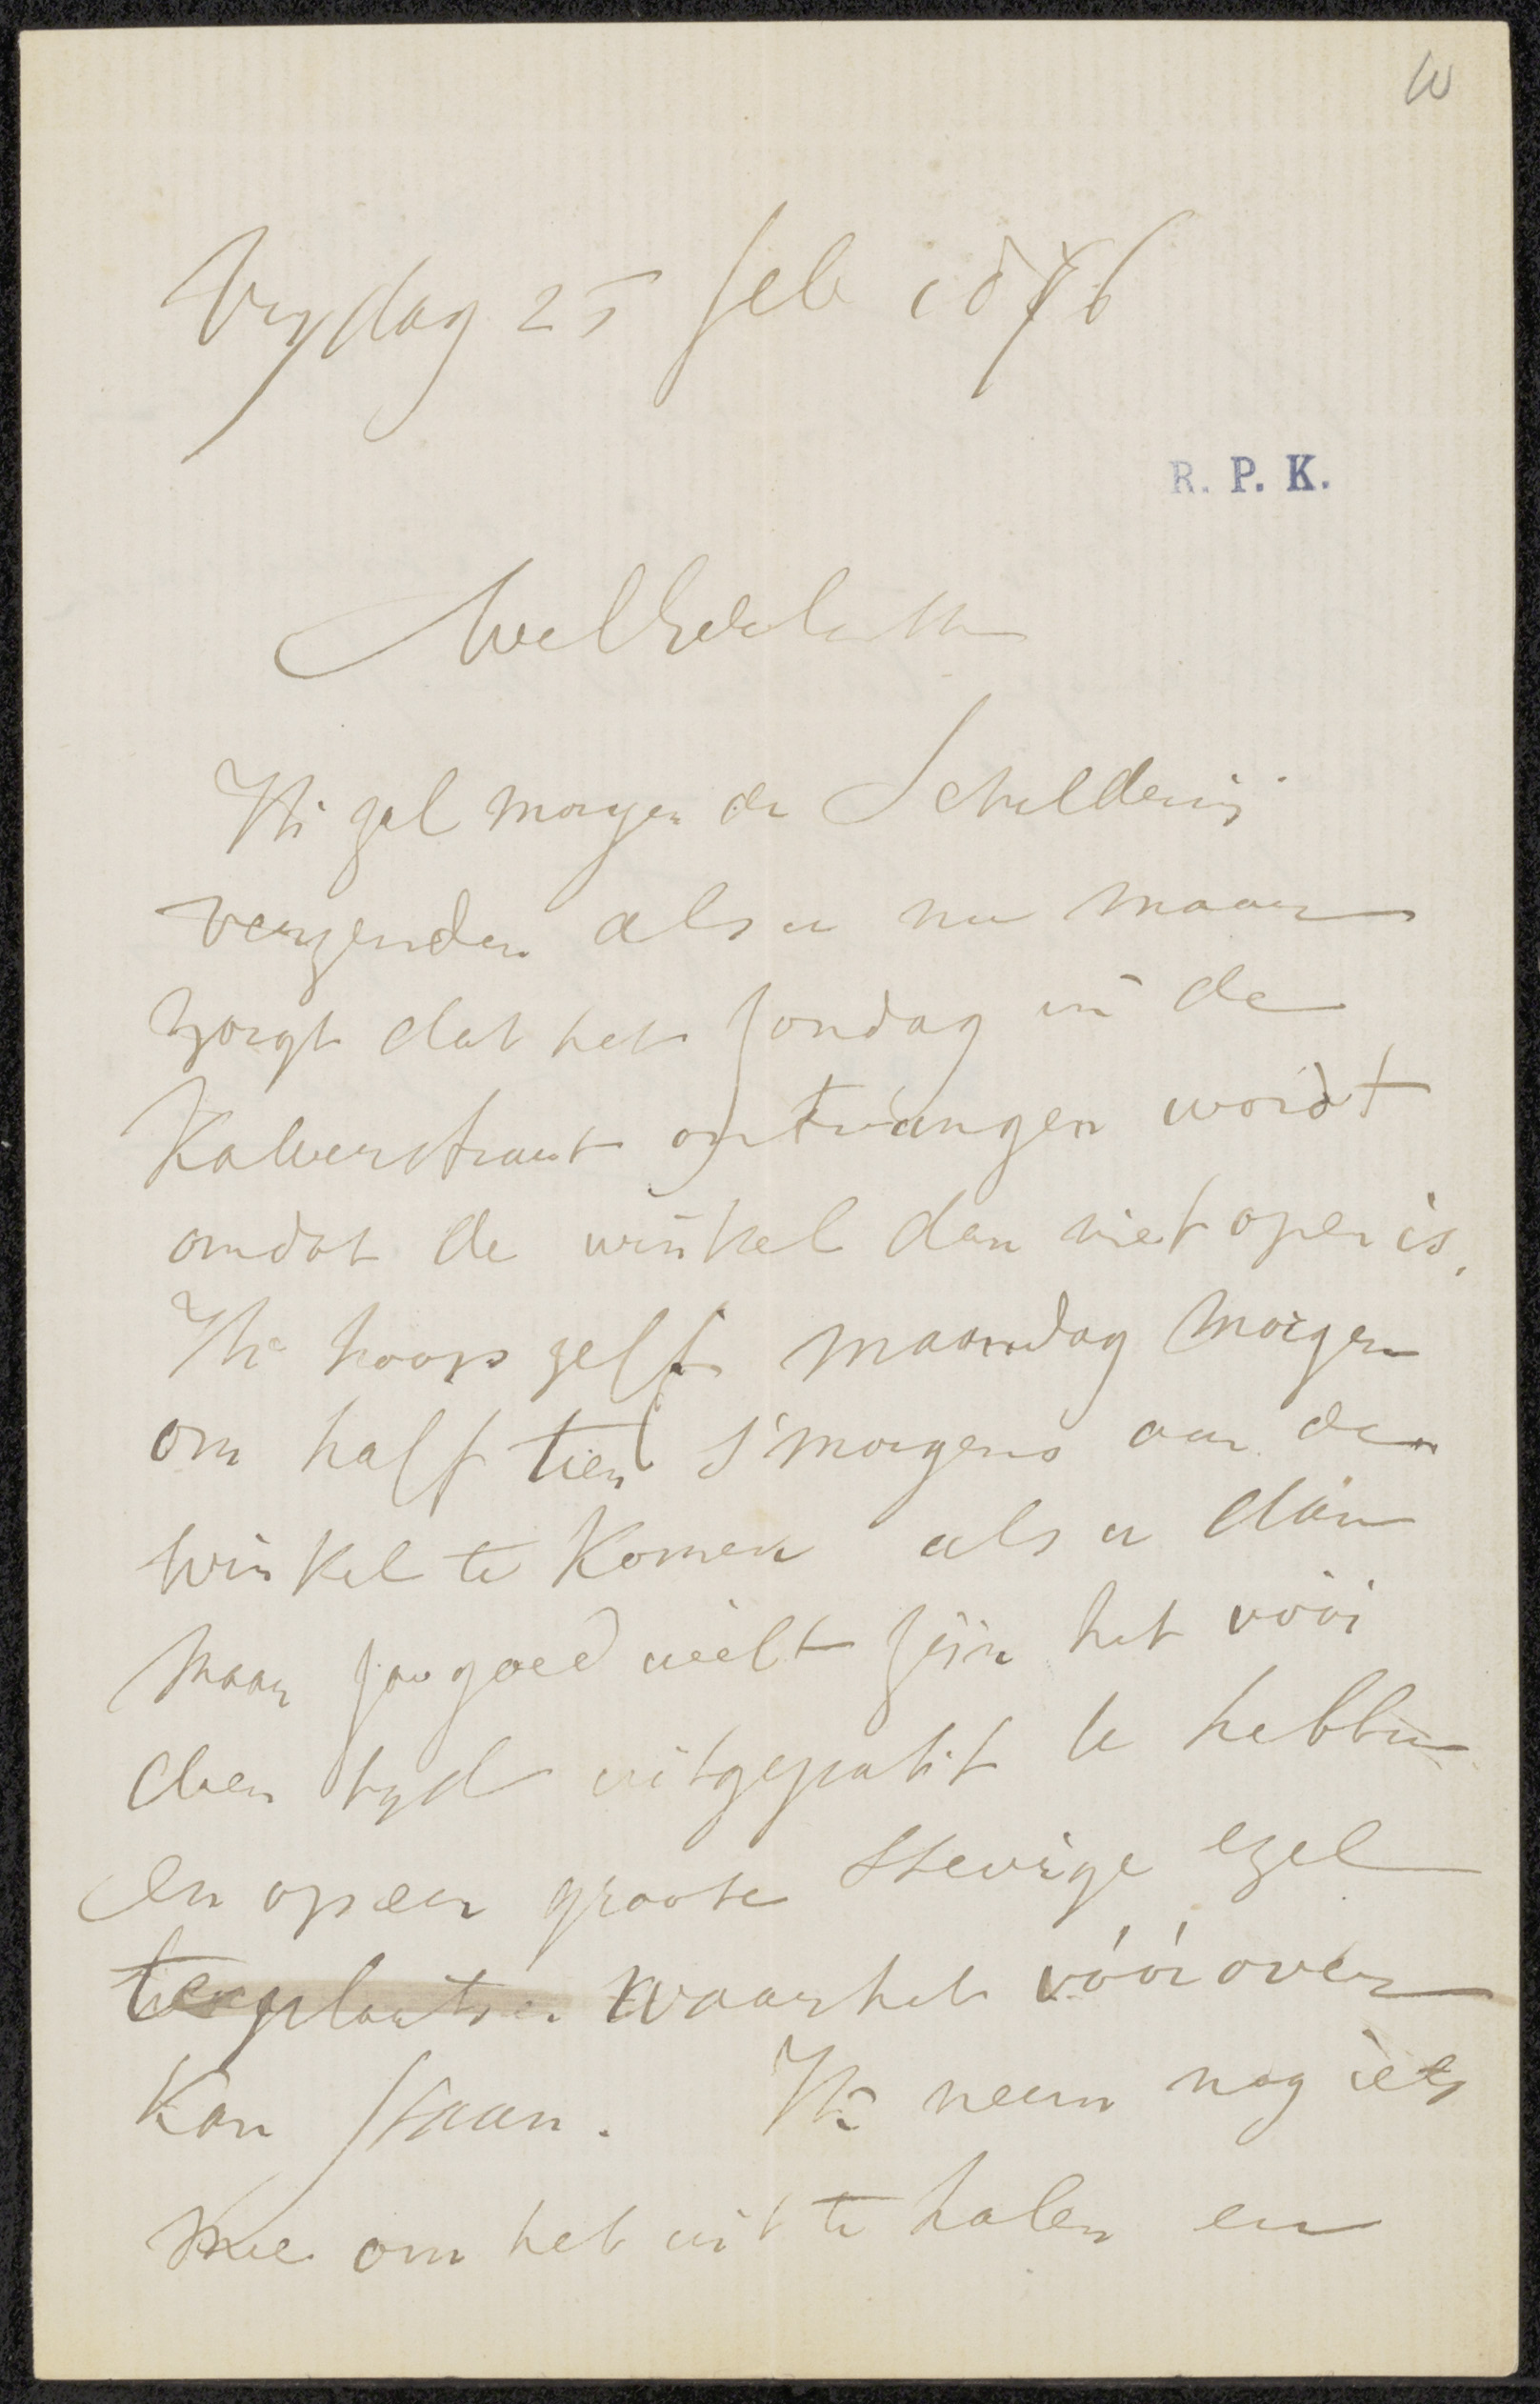 W
Vrydag 25 feb 1876
R. P. K.
WelEdele
Ik zal morgen de Schilderij
verzenden als u nu maar
zorgt dat het Zondag in de
Kalverstraat ontvangen wordt
omdat de winkel dan niet open is.
Ik hoop zelf maandag morgen
om half tien s'morgens aan den
winkel te komen als u dan
maar zoo goed wilt zijn het vóór
dien tyd uitgepakt te hebben
en op een groote stevige ezel
te plaatsen waar het vóórover
kan staan. Ik neem nog iets
mee om het uit te halen en